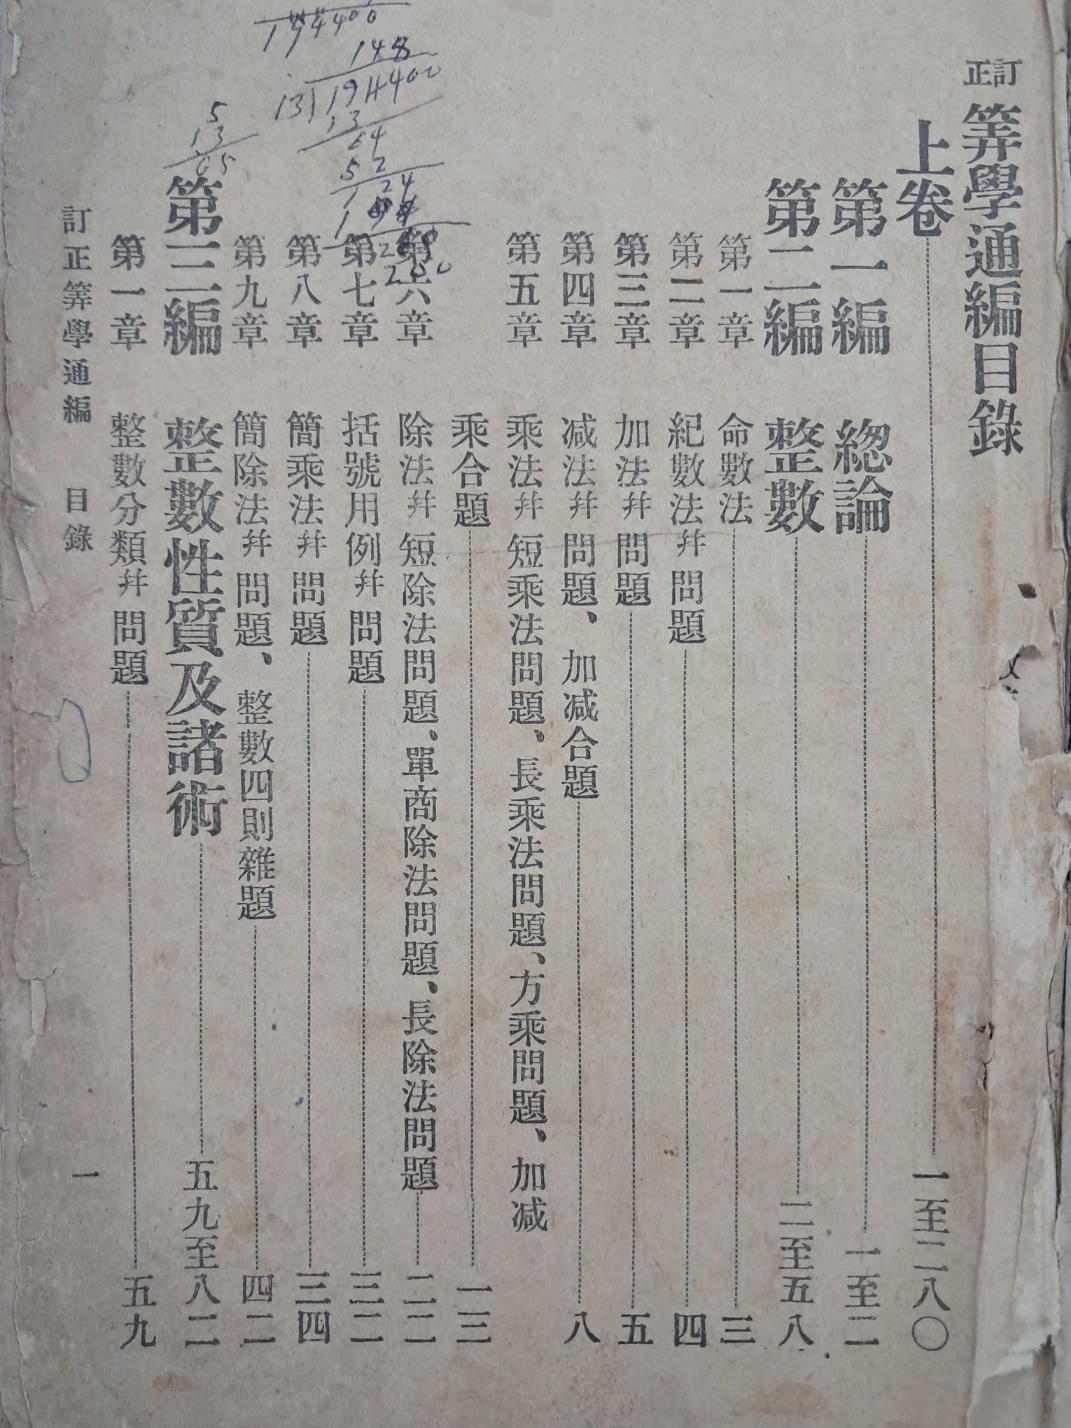 訂正 筭學通編目錄
上卷 一至二八〇
第一編 總論 一至二
第二編 整數 二至五八
第一章 命數法 三
第二章 紀數法幷問題 四
第三章 加法幷問題 五
第四章 減法幷問題、加減合題 八
第五章 乘法幷短乘法問題、長乘法問題、方乘問題、加減
乘合題 一三
第六章 除法幷短除法問題、單商除法問題、長除法問題 二二
第七章 括號用例幷問題 三二
第八章 簡乘法幷問題 三四
第九章 簡除法幷問題、整數四則雜題 四二
第三編 整數性質及諸術 五九至八二
第一章 整數分類幷問題 五九
訂正筭學通編 目錄 一
194400
148
13)194400
13
64
52
5
13
65